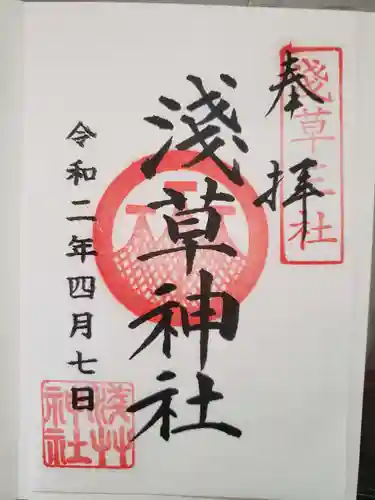 奉拝
淺草三社
淺草神社
令和二年四月七日
浅草神社